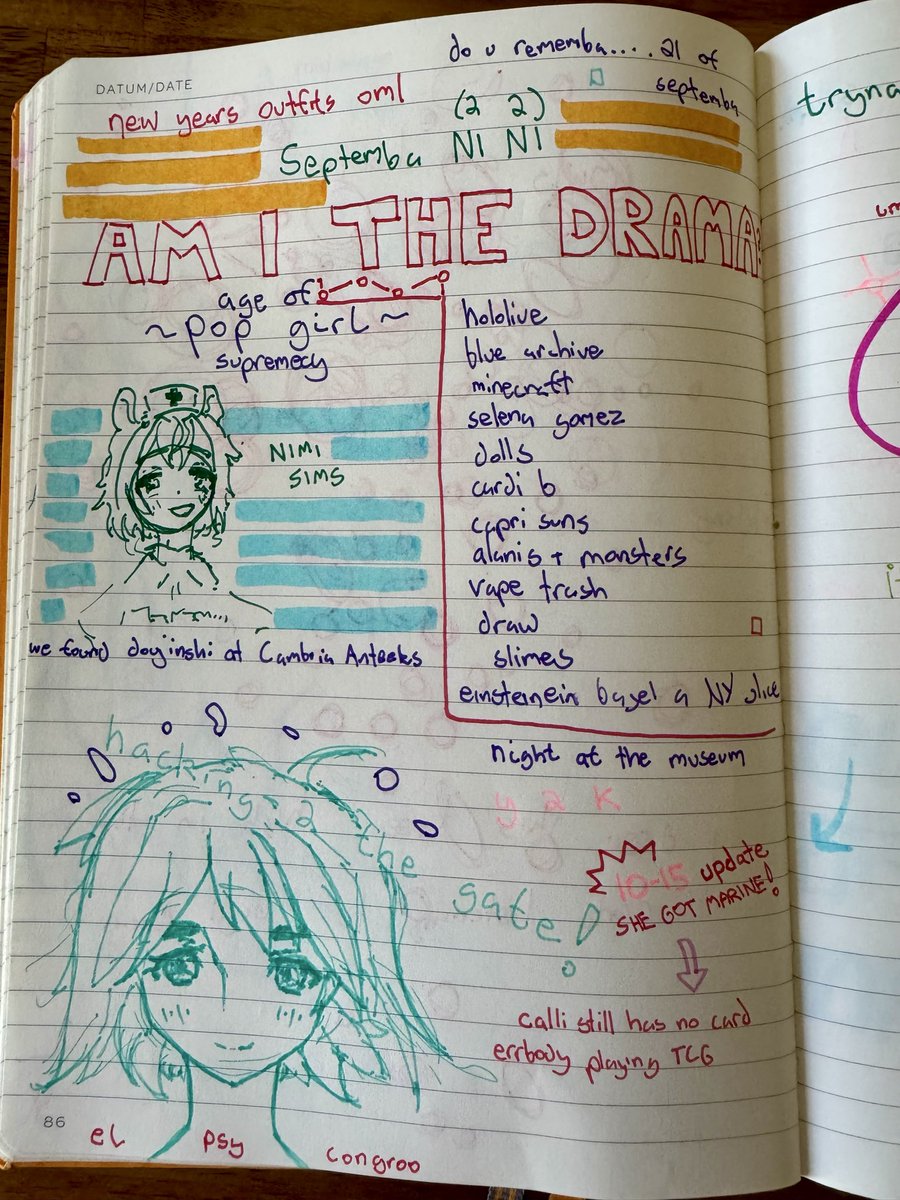 do u rememba.... 21 of
septemba
DATUM/DATE
new years outfits oml
(2 2)
Septemba NI NI
AM I THE DRAMA?
age of
~pop girl~
supremecy
hololive
blue archive
minecraft
selena gomez
dolls
cardi b
capri suns
alanis + monsters
vape trash
draw
slimes
einsteinein bagel a NY slice
NIMI
SIMS
we found doyjinshi at Cambria Anteeks
night at the museum
hacking 2 the
gate!
y 2 k
10-15 update
SHE GOT MARINE!
calli still has no card
errbody playing TCG
86
el psy congroo
tryna